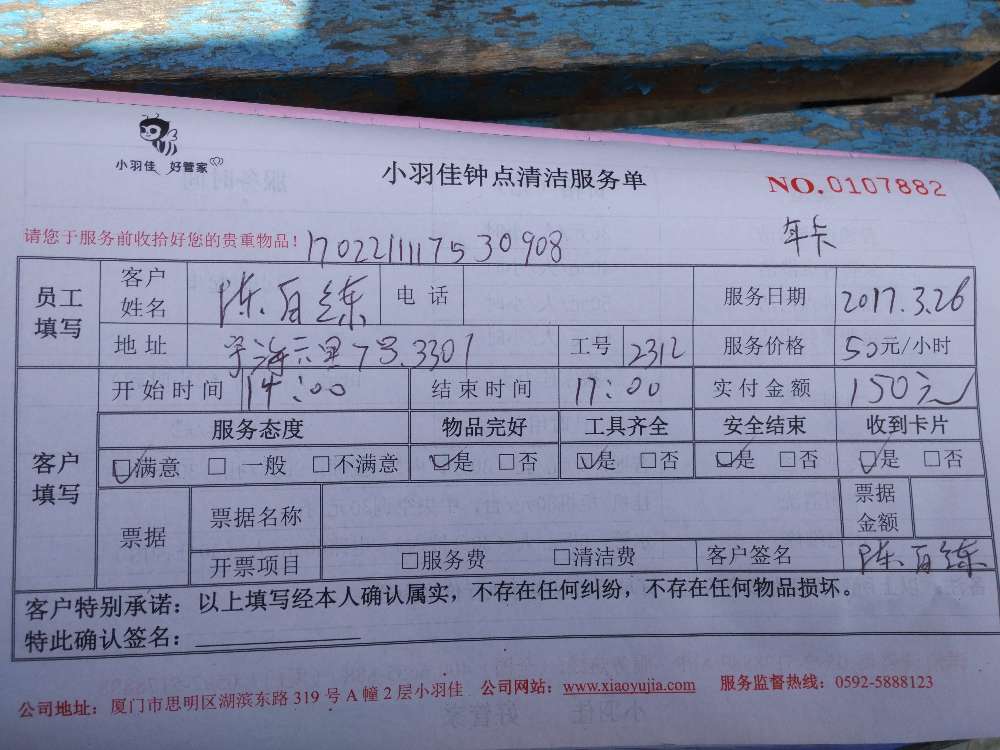 小羽佳 好管家
小羽佳钟点清洁服务单
NO.0107882
年卡
请您于服务前收拾好您的贵重物品! 1702211117530908
员工填写 客户姓名 陈百练 电话 服务日期 2017.3.26
地址 宁海三里7号3301 工号 2312 服务价格 50元/小时
客户填写 开始时间 14:00 结束时间 17:00 实付金额 150元
服务态度 物品完好 工具齐全 安全结束 收到卡片
☑满意 □一般 □不满意 ☑是 □否 ☑是 □否 ☑是 □否 ☑是 □否
票据 票据名称 票据金额
开票项目 □服务费 □清洁费 客户签名 陈百练
客户特别承诺：以上填写经本人确认属实，不存在任何纠纷，不存在任何物品损坏。
特此确认签名：
公司地址：厦门市思明区湖滨东路319号A幢2层小羽佳 公司网站：www.xiaoyujia.com 服务监督热线：0592-5888123